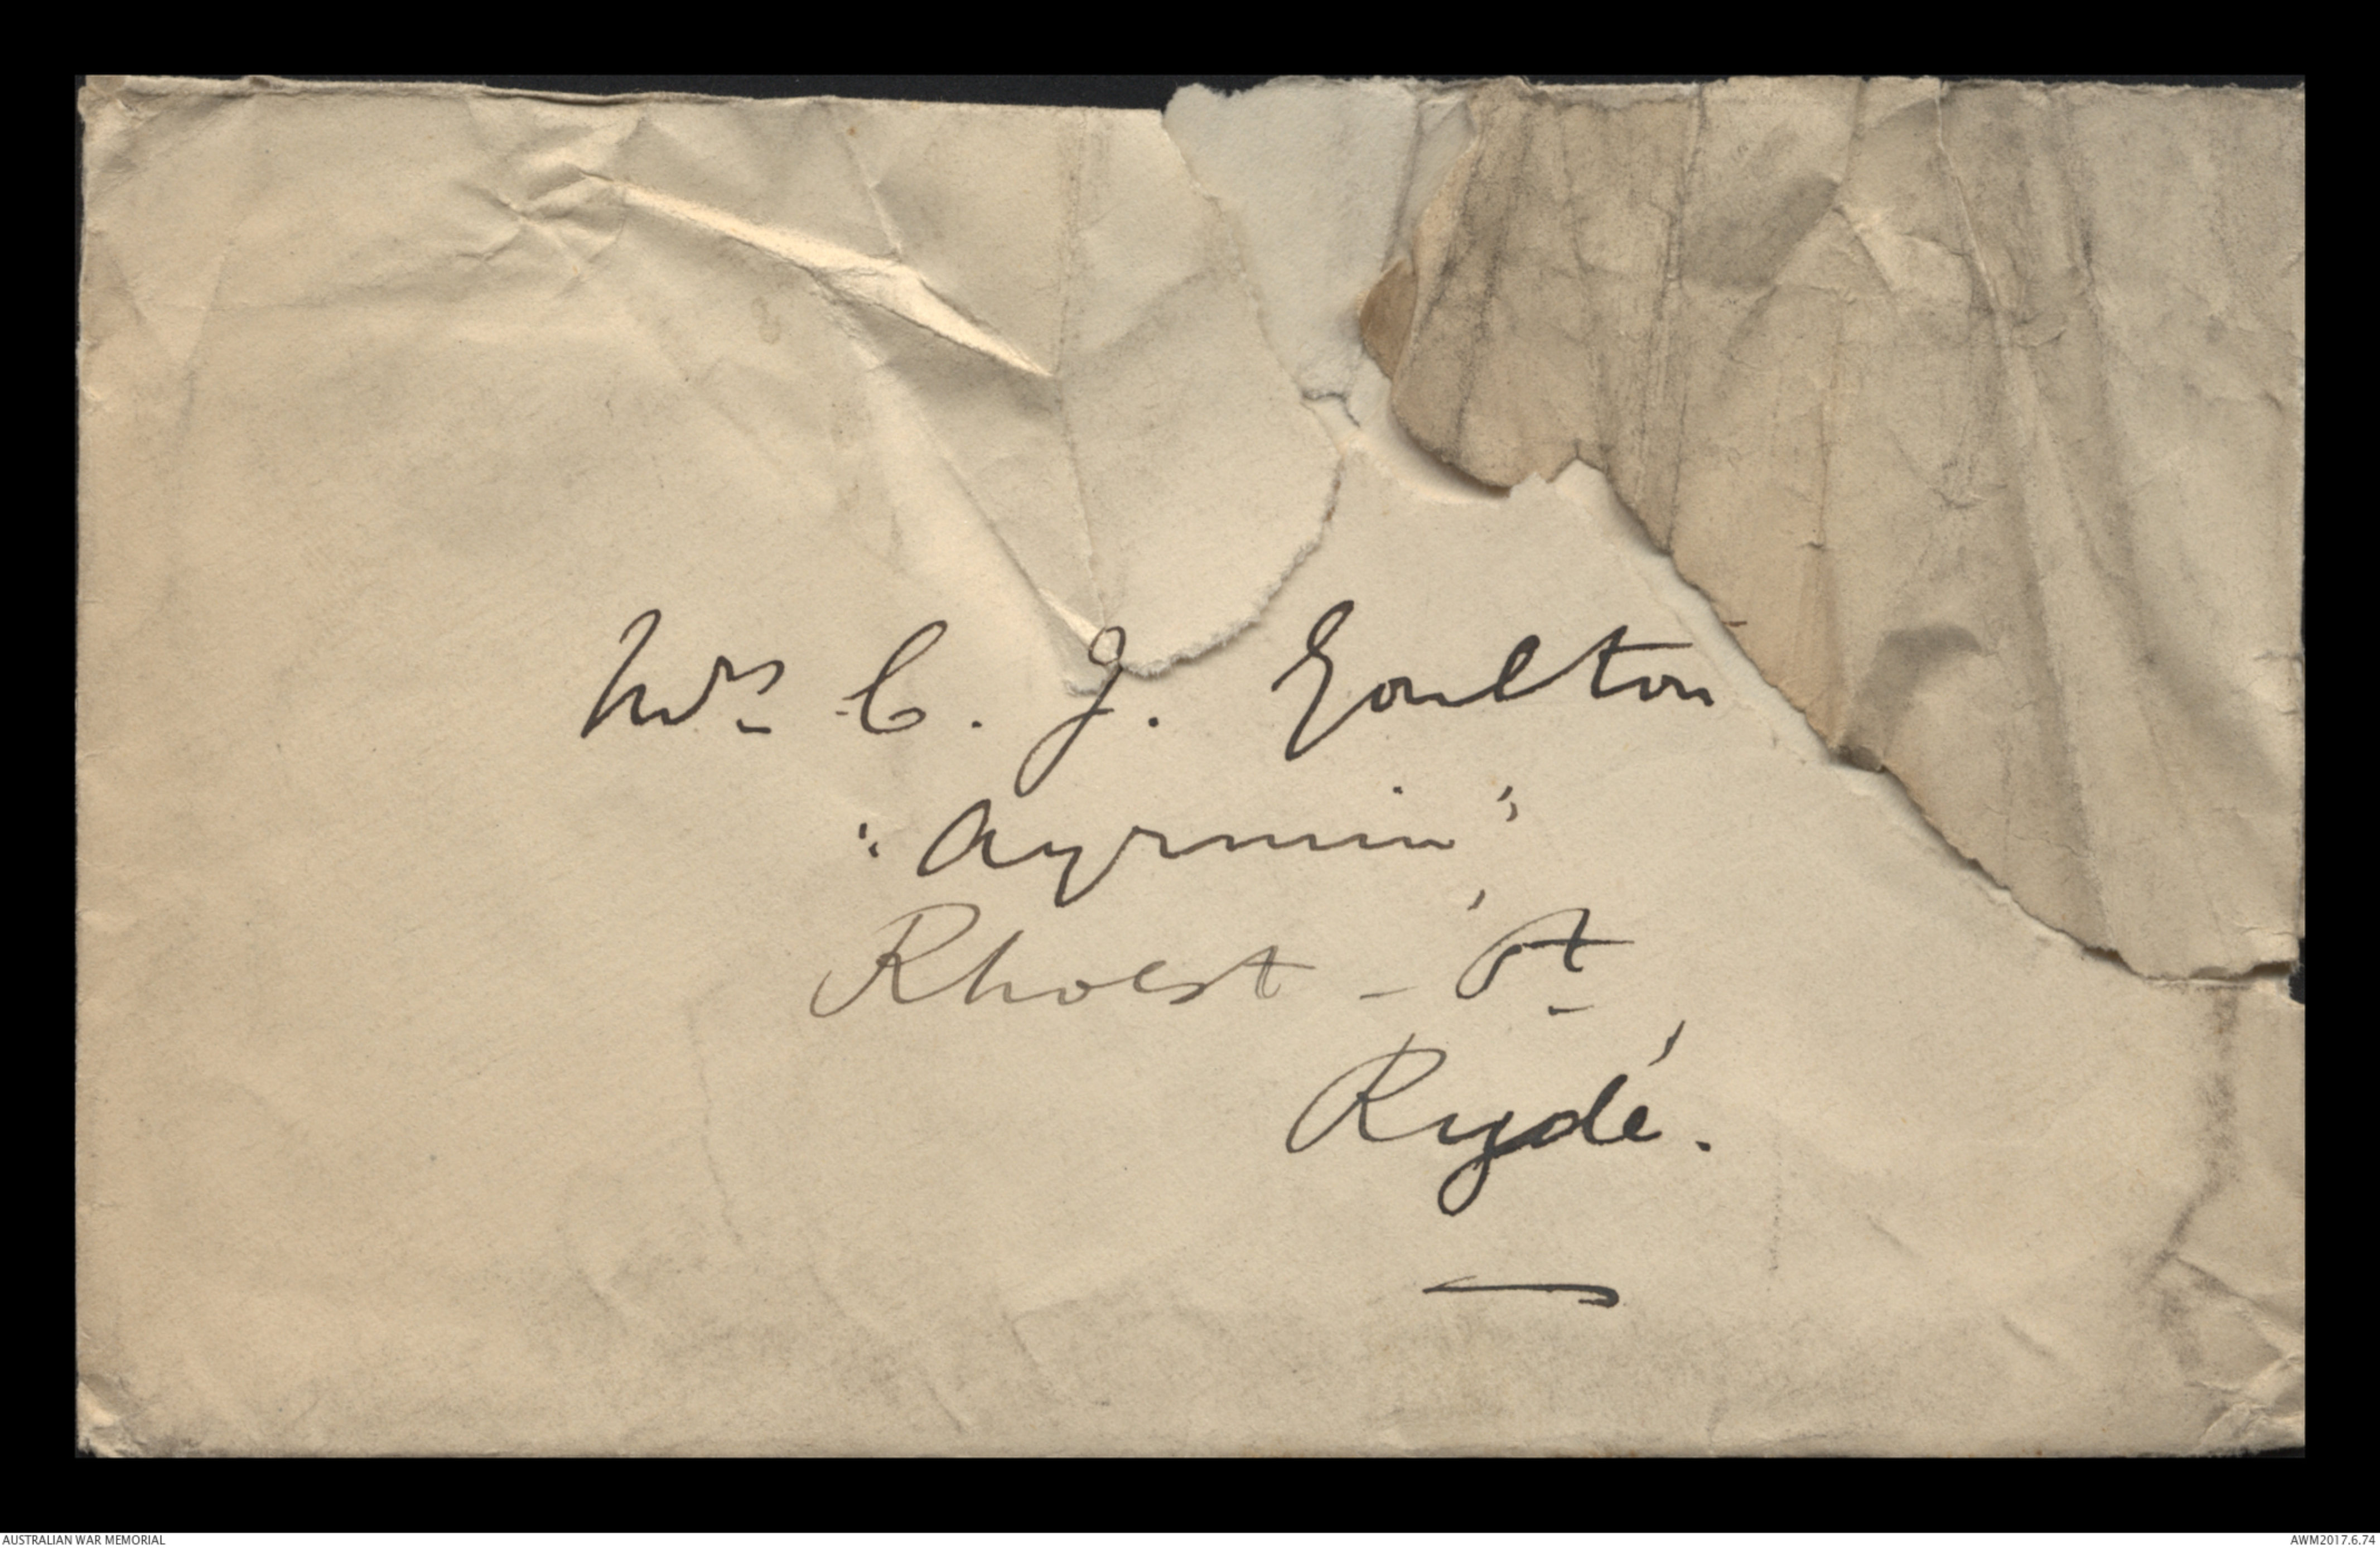 Mrs C. J. Goulton
"Ayrmin"
Rholst - St,
Ryde.
AUSTRALIAN WAR MEMORIAL
AWM2017.6.74